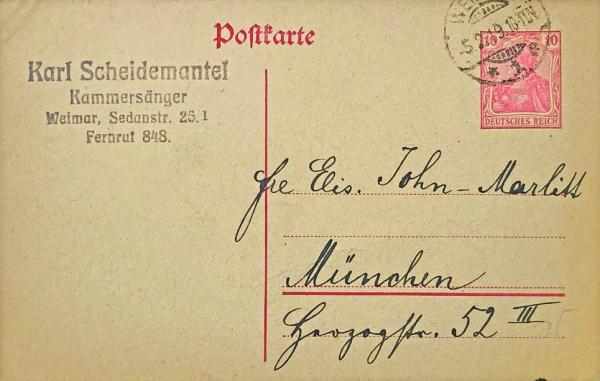 Postkarte
Karl Scheidemantel
Kammersänger
Weimar, Sedanstr. 25.I
Fernruf 848.
5.2.19.10-11V
* 1 e
10 10
DEUTSCHES REICH
Eis. John-Marlitt
München
Herzogstr. 52 III